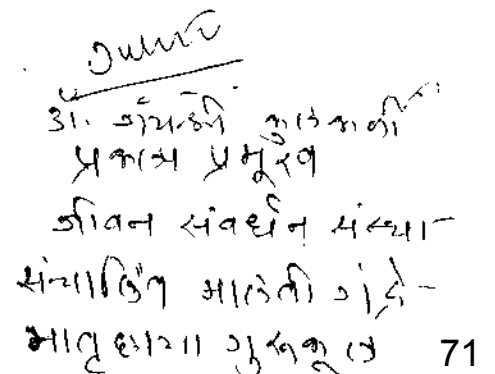 डॉ. कुलकर्णी
प्रकल्प प्रमुख
जीवन संवर्धन संस्था
संचालित मालती
मातृछाया गुरुकूल 71